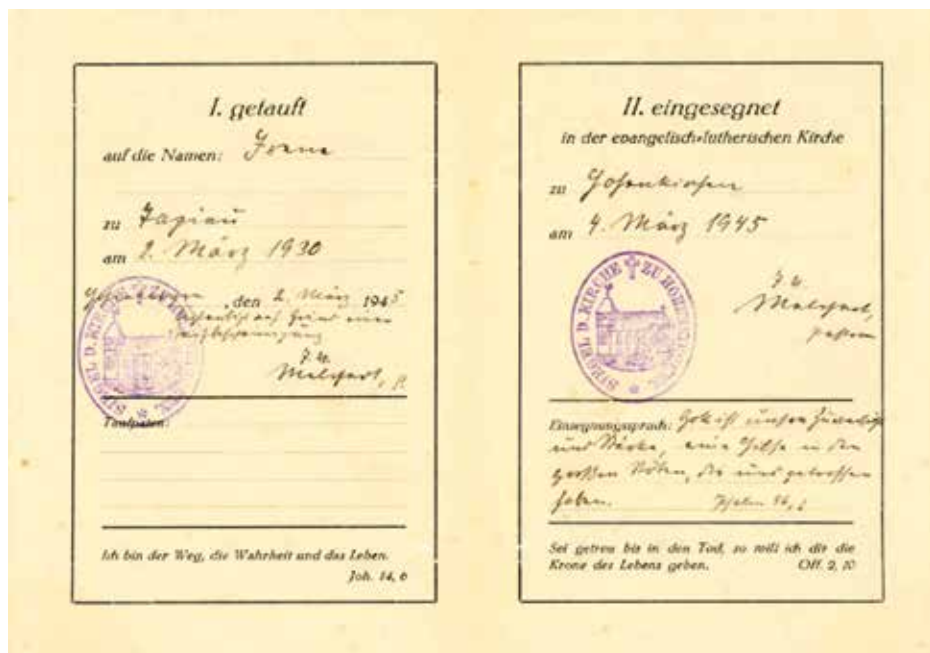 I. getauft
auf die Namen: Irene
zu Tapiau
am 2. März 1930
Hohenkirchen, den 2. März 1945
auf Grund einer
I. V.
Taufpaten:
Ich bin der Weg, die Wahrheit und das Leben.
Joh. 14, 6
II. eingesegnet
in der evangelisch-lutherischen Kirche
zu Hohenkirchen
am 4. März 1945
I. V.
Pastor
SIEGEL D. KIRCHE ZU HOHENKIRCHEN
Einsegnungsspruch: Gott ist unsere Zuversicht
und Stärke, eine Hilfe in den
großen Nöten, die uns getroffen
haben. Psalm 46, 2
Sei getreu bis in den Tod, so will ich dir die
Krone des Lebens geben. Off. 2, 10